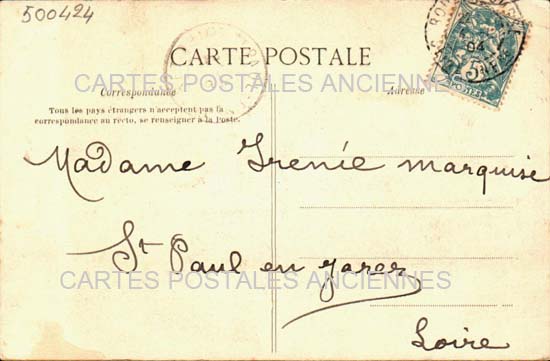 500424
CARTE POSTALE
CARTES POSTALES ANCIENNES
Correspondance
Adresse
Tous les pays étrangers n'acceptent pas la
correspondance au recto, se renseigner à la Poste.
Madame Irénie Marquise
St Paul en Jarez
CARTES POSTALES ANCIENNES
Loire